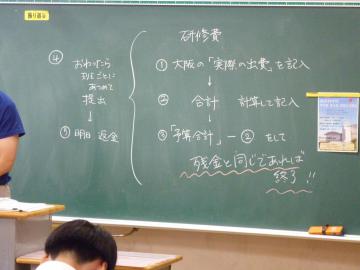 振り返る
研修費
① 大阪の「実際の出費」を記入
↓
② 合計 計算して記入
↓
③ 「予算合計」－② をして
残金と同じであれば
終了!!
④ おわったら
班ごとに
あつめて
提出
↓
⑤ 明日 返金